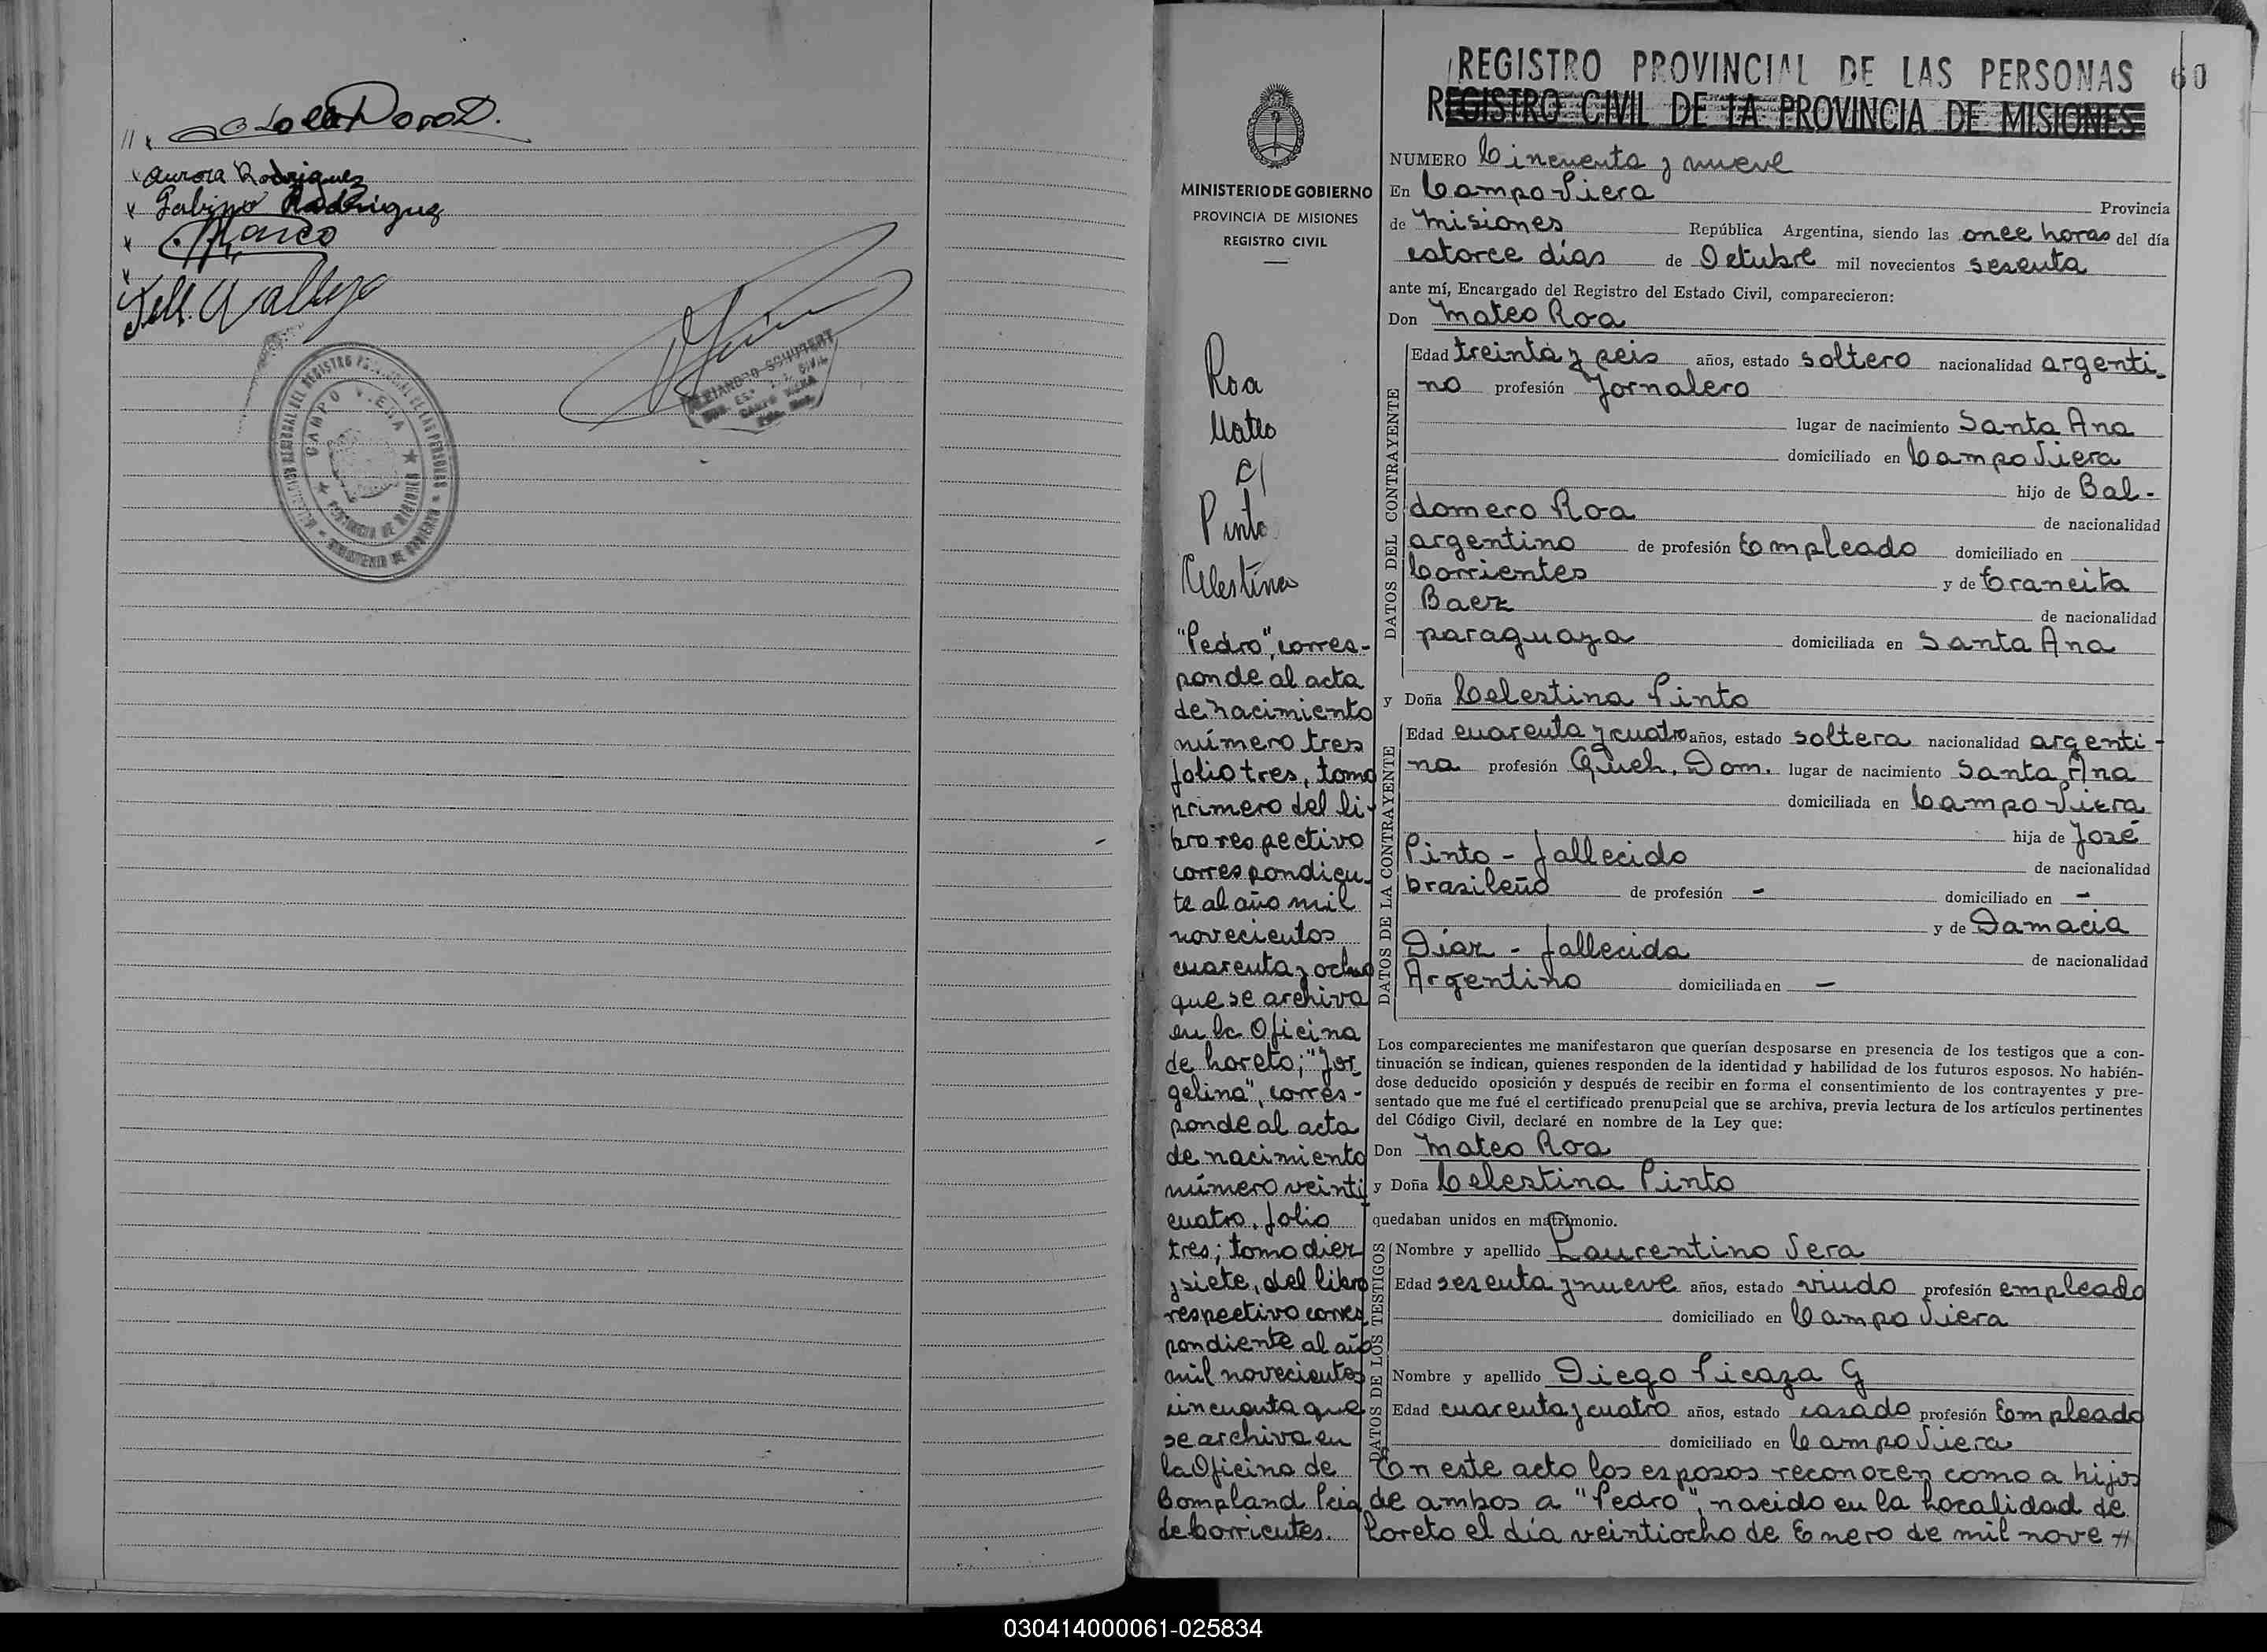 Aurora Rodriguez
Gabino Rodriguez
CAMPO VIERA
PROVINCIA DE MISIONES
REGISTRO PROVINCIAL DE LAS PERSONAS 60
REGISTRO CIVIL DE LA PROVINCIA DE MISIONES
MINISTERIO DE GOBIERNO
PROVINCIA DE MISIONES
REGISTRO CIVIL
Roa
Mateo
c/
Pinto
Celestina
"Pedro", corres-
ponde al acta
de nacimiento
número tres
folio tres, tomo
primero del li-
bro respectivo
correspondien-
te al año mil
novecientos
cuarenta y ocho
que se archiva
en la Oficina
de Loreto; "Jor
gelina", corres-
ponde al acta
de nacimiento
número veinti
cuatro, folio
tres; tomo diez
y siete, del libro
respectivo corres
pondiente al año
mil novecientos
cincuenta que
se archiva en
la Oficina de
Bompland Pcia
de Corrientes.
NUMERO Cincuenta y nueve
En Campo Viera Provincia
de Misiones República Argentina, siendo las once horas del día
catorce días de Octubre mil novecientos sesenta
ante mí, Encargado del Registro del Estado Civil, comparecieron:
Don Mateo Roa
DATOS DEL CONTRAYENTE
Edad treinta y seis años, estado soltero nacionalidad argenti-
no profesión Jornalero
lugar de nacimiento Santa Ana
domiciliado en Campo Viera
hijo de Bal-
domero Roa de nacionalidad
argentino de profesión Empleado domiciliado en
Corrientes y de Erancita
Baez de nacionalidad
paraguaya domiciliada en Santa Ana
y Doña Celestina Pinto
DATOS DE LA CONTRAYENTE
Edad cuarenta y cuatro años, estado soltera nacionalidad argenti-
na profesión Queh. Dom. lugar de nacimiento Santa Ana
domiciliada en Campo Viera
hija de José
Pinto - fallecido de nacionalidad
brasileño de profesión - domiciliado en -
y de Damacia
Díaz - fallecida de nacionalidad
Argentino domiciliada en -
Los comparecientes me manifestaron que querían desposarse en presencia de los testigos que a con-
tinuación se indican, quienes responden de la identidad y habilidad de los futuros esposos. No habién-
dose deducido oposición y después de recibir en forma el consentimiento de los contrayentes y pre-
sentado que me fué el certificado prenupcial que se archiva, previa lectura de los artículos pertinentes
del Código Civil, declaré en nombre de la Ley que:
Don Mateo Roa
y Doña Celestina Pinto
quedaban unidos en matrimonio.
DATOS DE LOS TESTIGOS
Nombre y apellido Laurentino Vera
Edad sesenta y nueve años, estado viudo profesión empleado
domiciliado en Campo Viera
Nombre y apellido Diego Picaza G
Edad cuarenta y cuatro años, estado casado profesión Empleado
domiciliado en Campo Viera
En este acto los esposos reconocen como a hijos
de ambos a "Pedro", nacido en la Localidad de
Loreto el día veintiocho de Enero de mil nove //
030414000061-025834